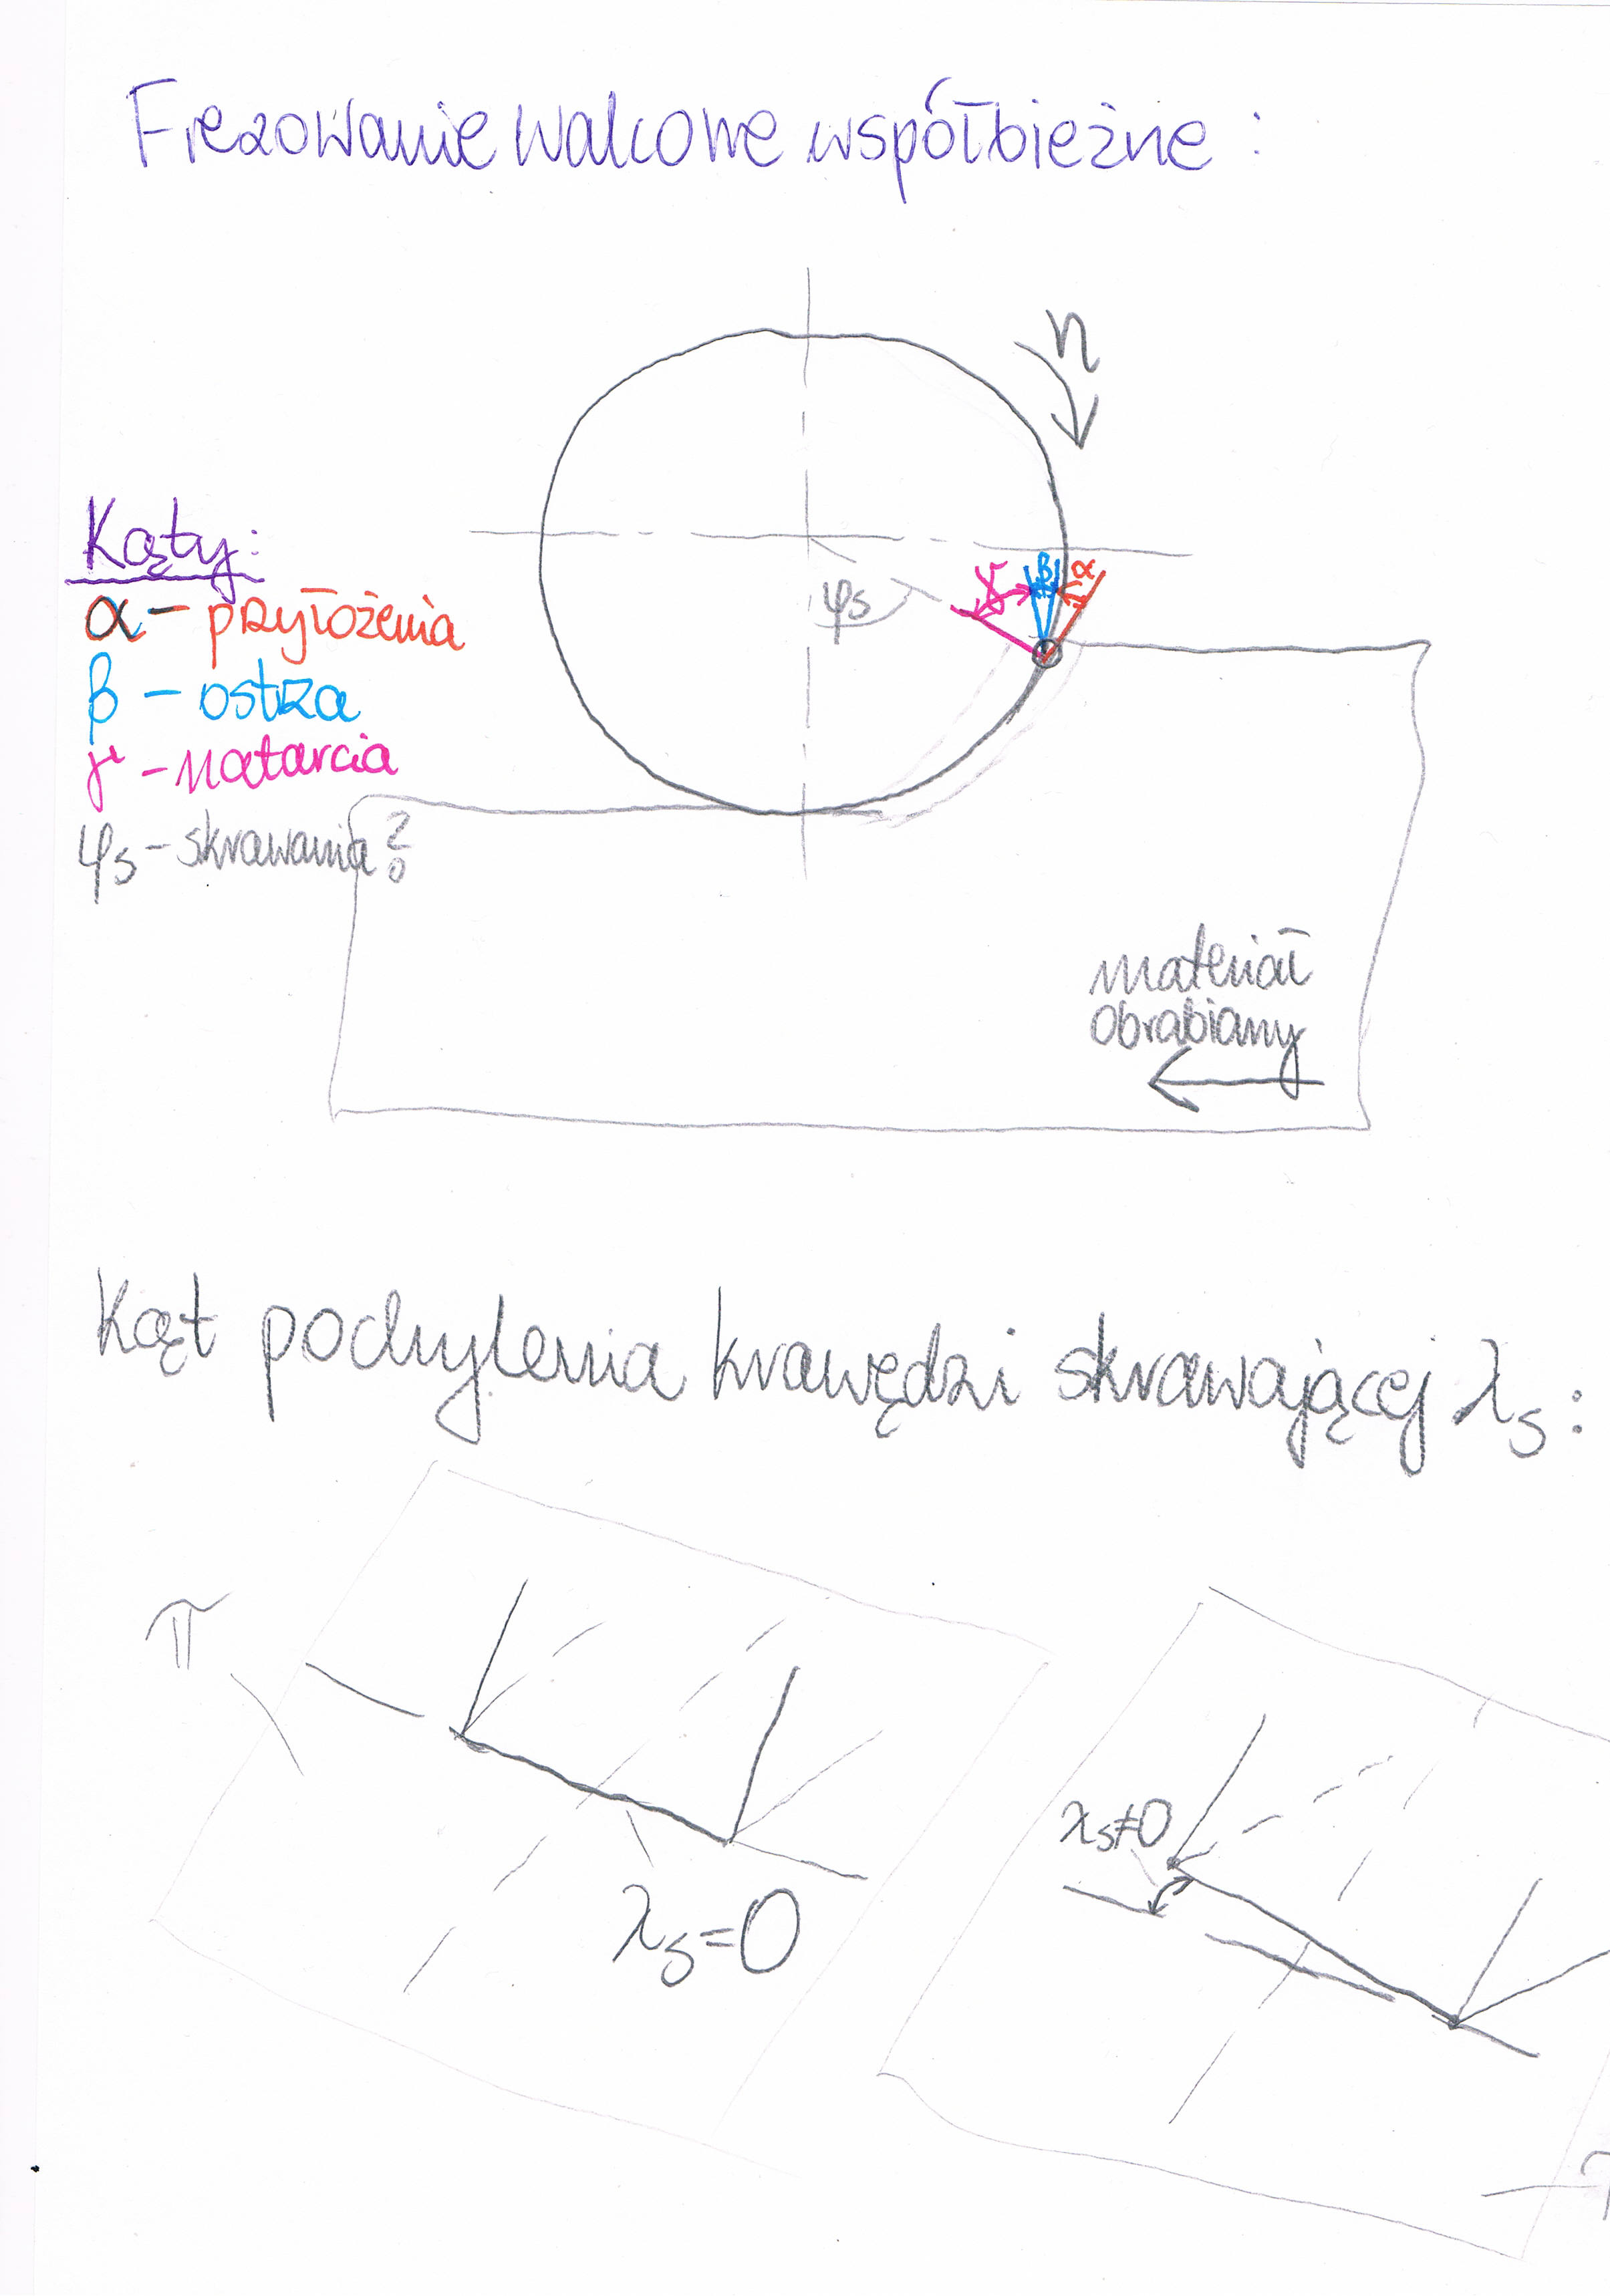 Frezowanie walcowe współbieżne:
n
Kąty:
α - przyłożenia
β - ostrza
γ - natarcia
φs - skrawania?
γ β α
φs
materiał
obrabiany
Kąt pochylenia krawędzi skrawającej λs:
π
λs≠0
λs=0